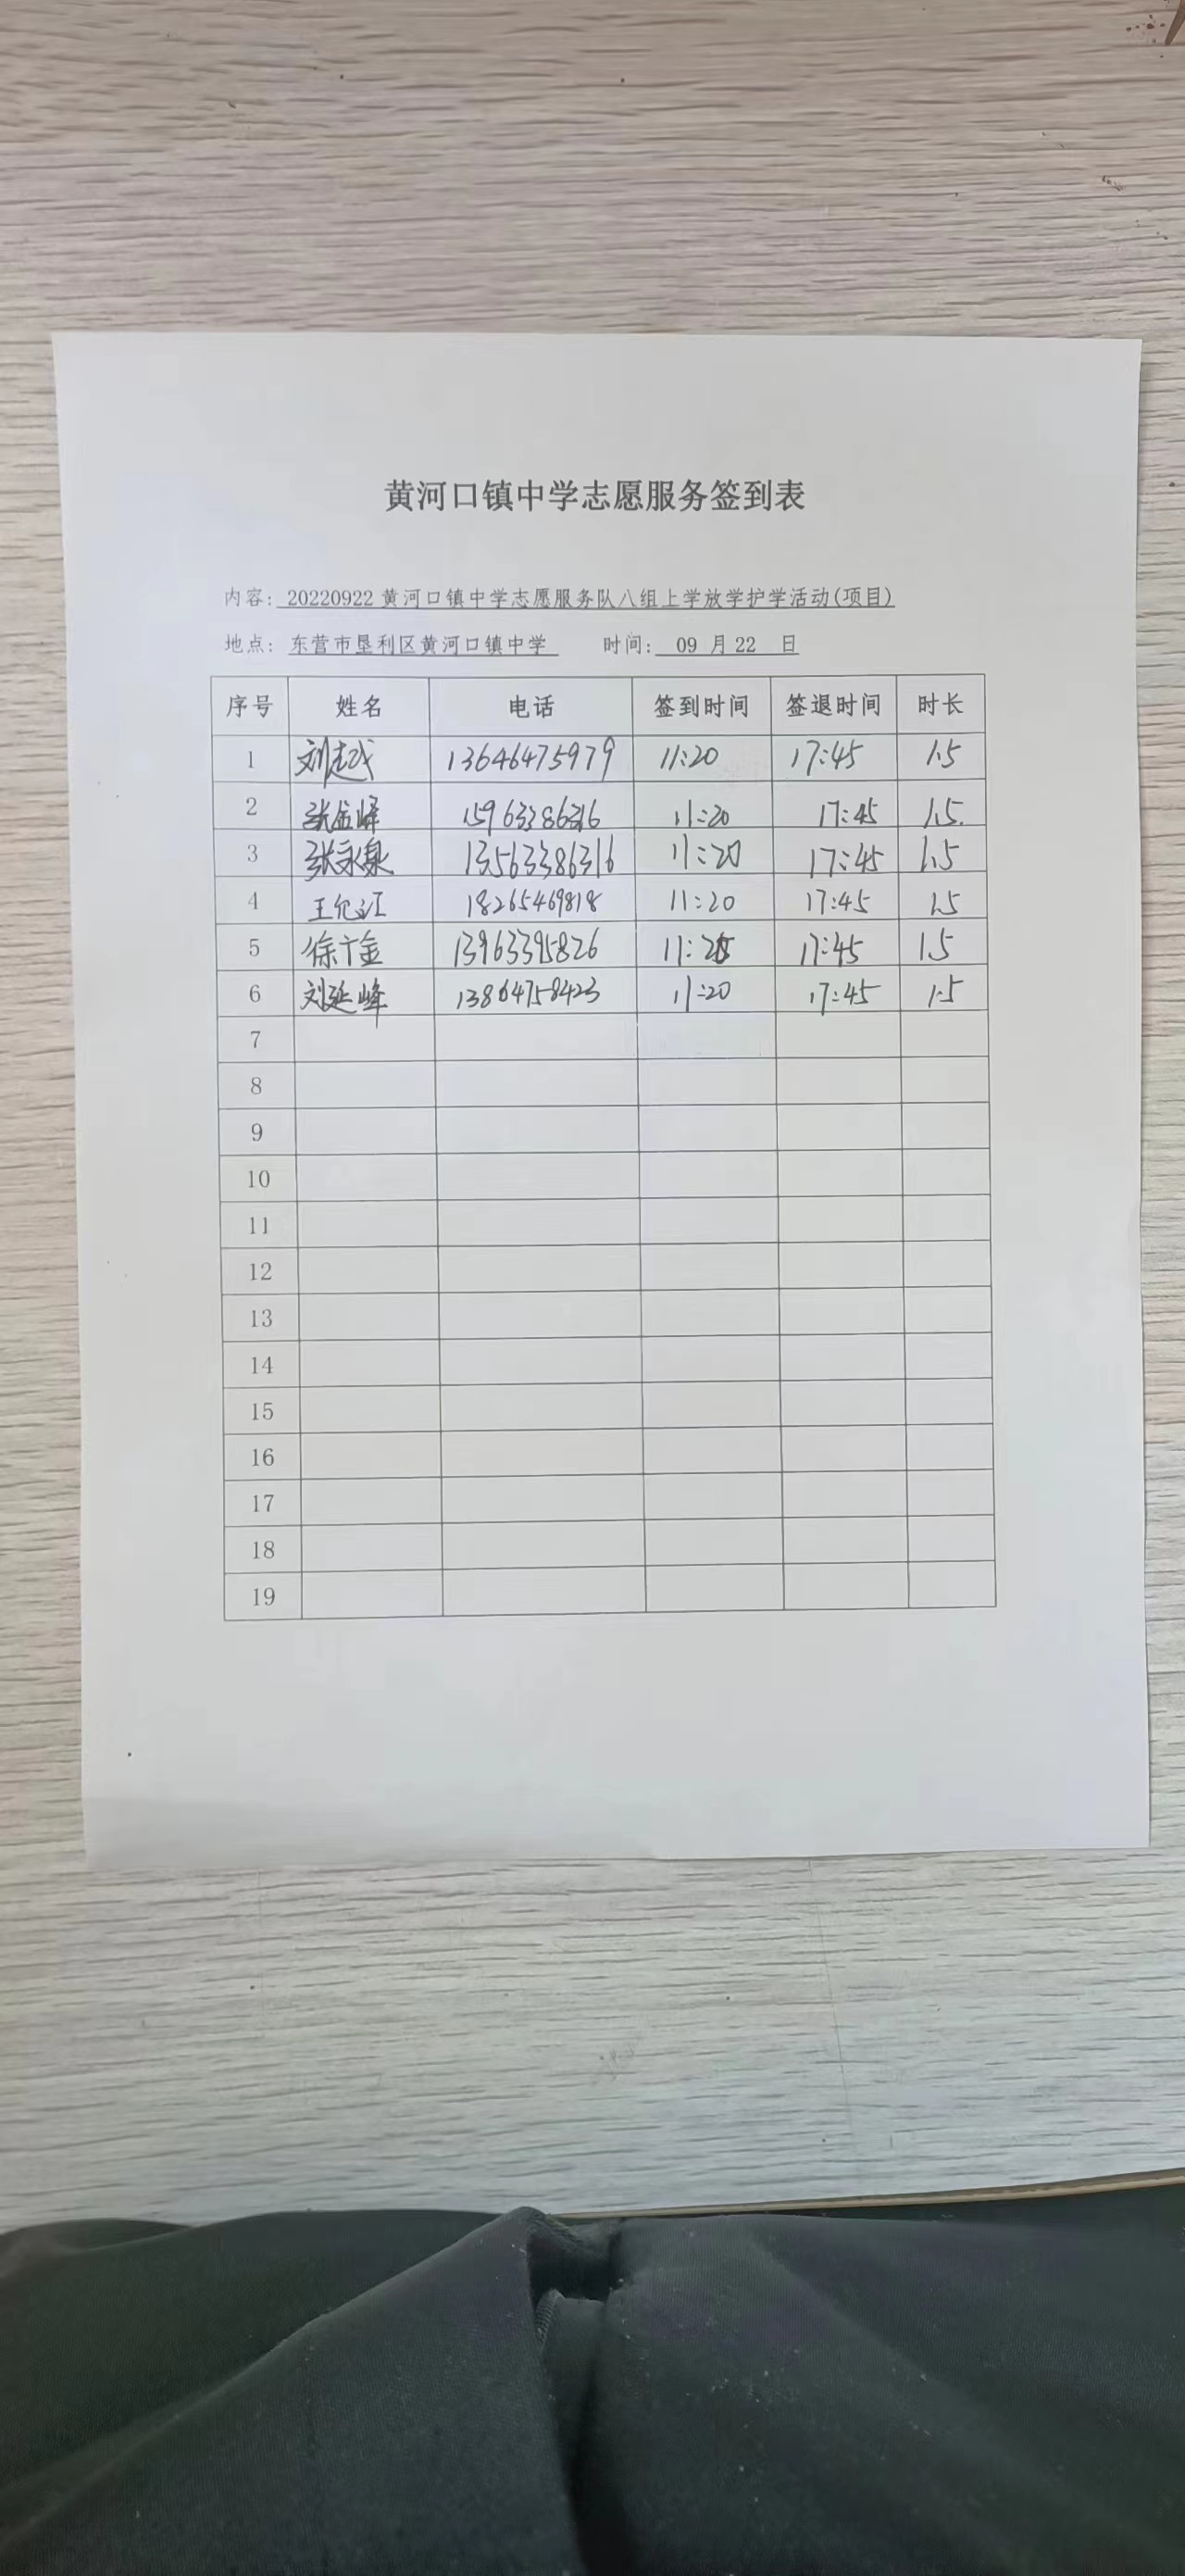 黄河口镇中学志愿服务签到表
内容: 20220922 黄河口镇中学志愿服务队八组上学放学护学活动(项目)
地点: 东营市垦利区黄河口镇中学 时间: 09 月 22 日
序号 姓名 电话 签到时间 签退时间 时长
1 刘越 13646475979 11:20 17:45 1.5
2 张 峰 15963386316 11:20 17:45 1.5
3 张永泉 13563386316 11:20 17:45 1.5
4 王 江 18265469818 11:20 17:45 1.5
5 徐 金 13963395826 11: 17:45 1.5
6 刘延峰 13864758423 11:20 17:45 1.5
7
8
9
10
11
12
13
14
15
16
17
18
19